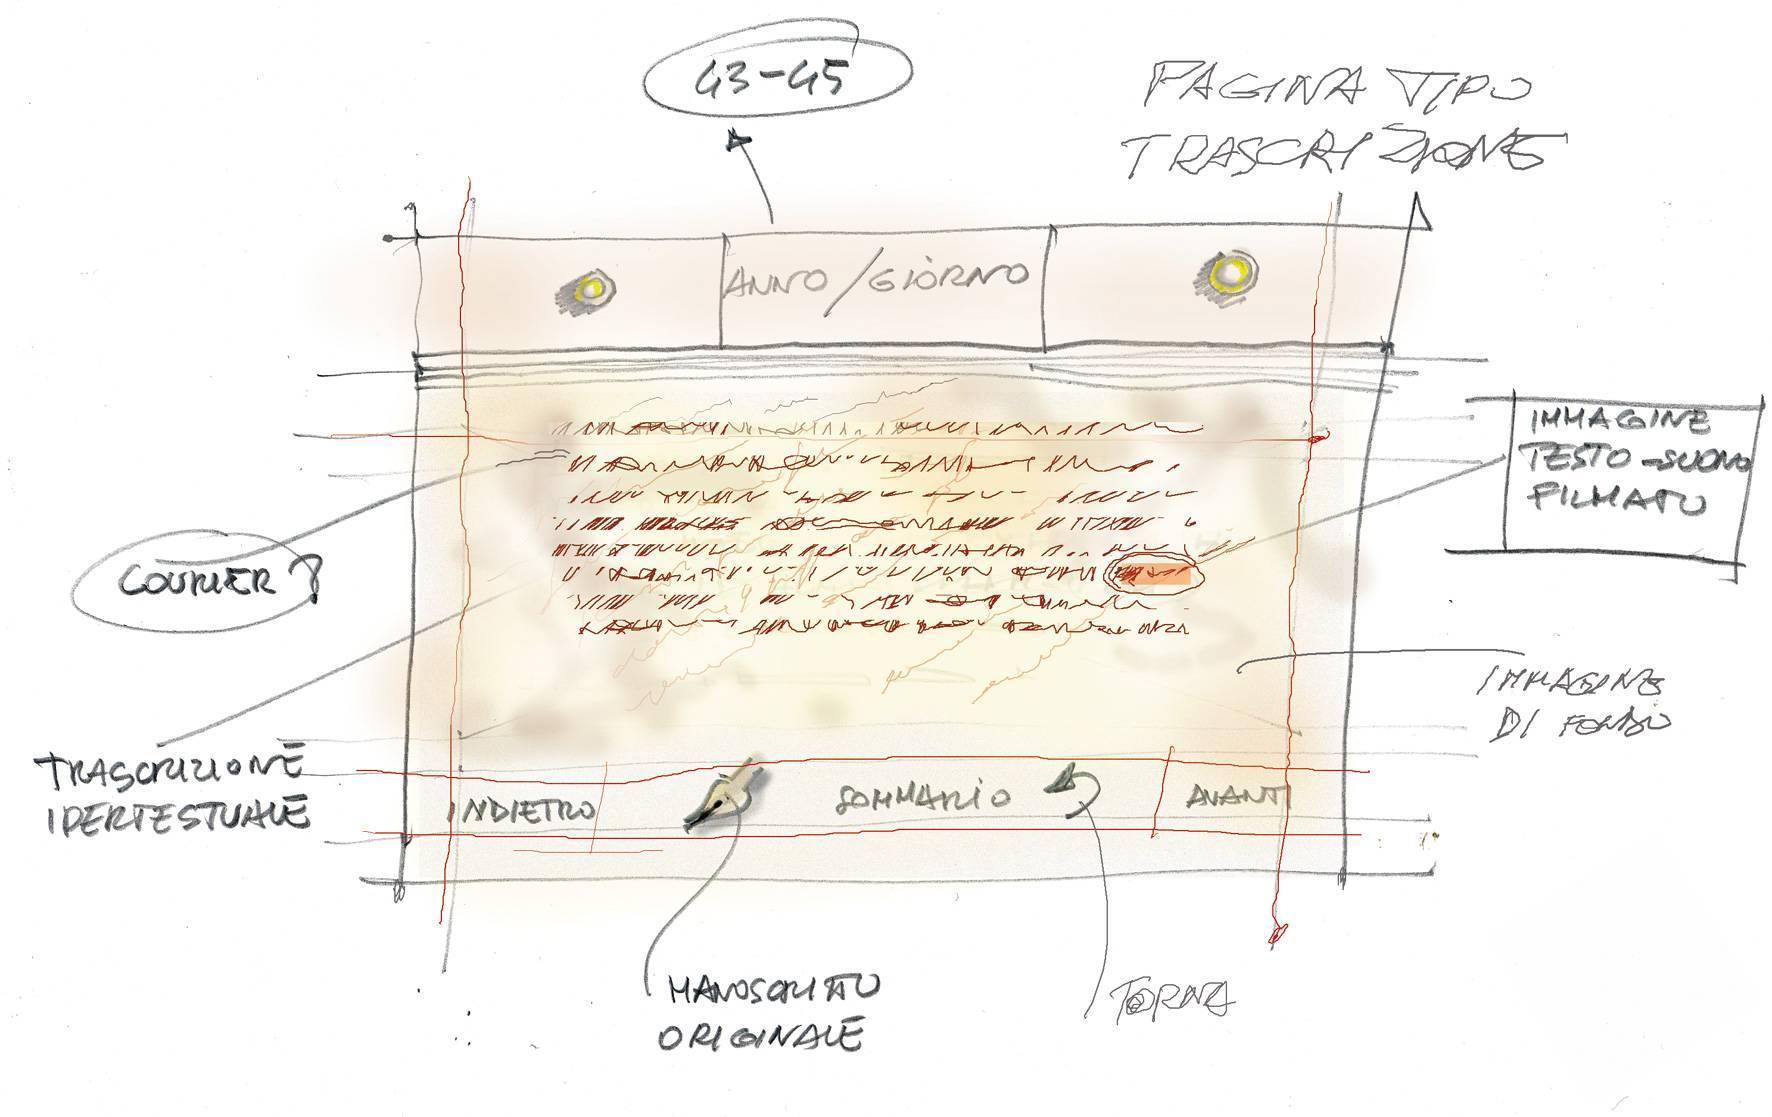 43-45
PAGINA TIPO
TRASCRIZIONE
ANNO/GIORNO
IMMAGINE
TESTO-SUONO
FILMATO
COURIER?
IMMAGINE
DI FONDO
TRASCRIZIONE
IPERTESTUALE
INDIETRO
SOMMARIO
AVANTI
MANOSCRITTO
ORIGINALE
TORNA